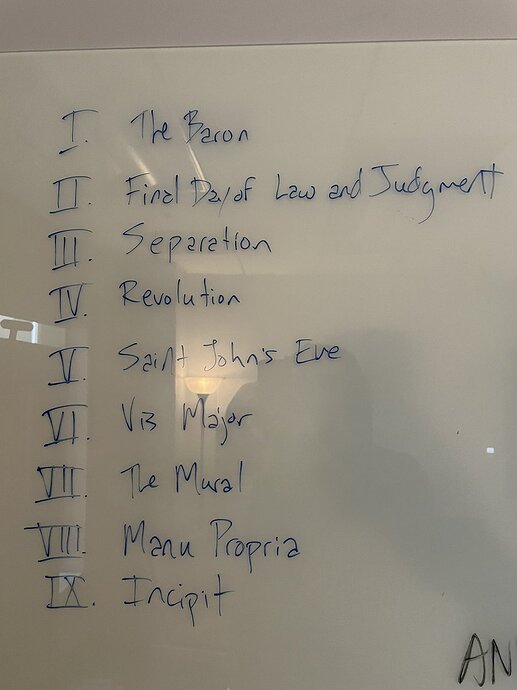 I. The Baron
II. Final Day of Law and Judgment
III. Separation
IV. Revolution
V. Saint John's Eve
VI. Vis Major
VII. The Mural
VIII. Manu Propria
IX. Incipit
AN